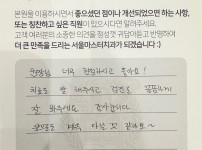 본원을 이용하시면서 좋으셨던 점이나 개선되었으면 하는 사항,
또는 칭찬하고 싶은 직원이 있으시다면 알려주세요.
고객 여러분의 소중한 의견을 정성껏 귀담아듣고 반영하여
더 큰 만족을 드리는 서울마스터치과가 되겠습니다 :)
원장님 너무 친절하시고 좋아요!
치료도 잘 해주시고 검진도 꼼꼼하게
잘 봐주세요 감사합니다
계속 다닐 것 같아요~